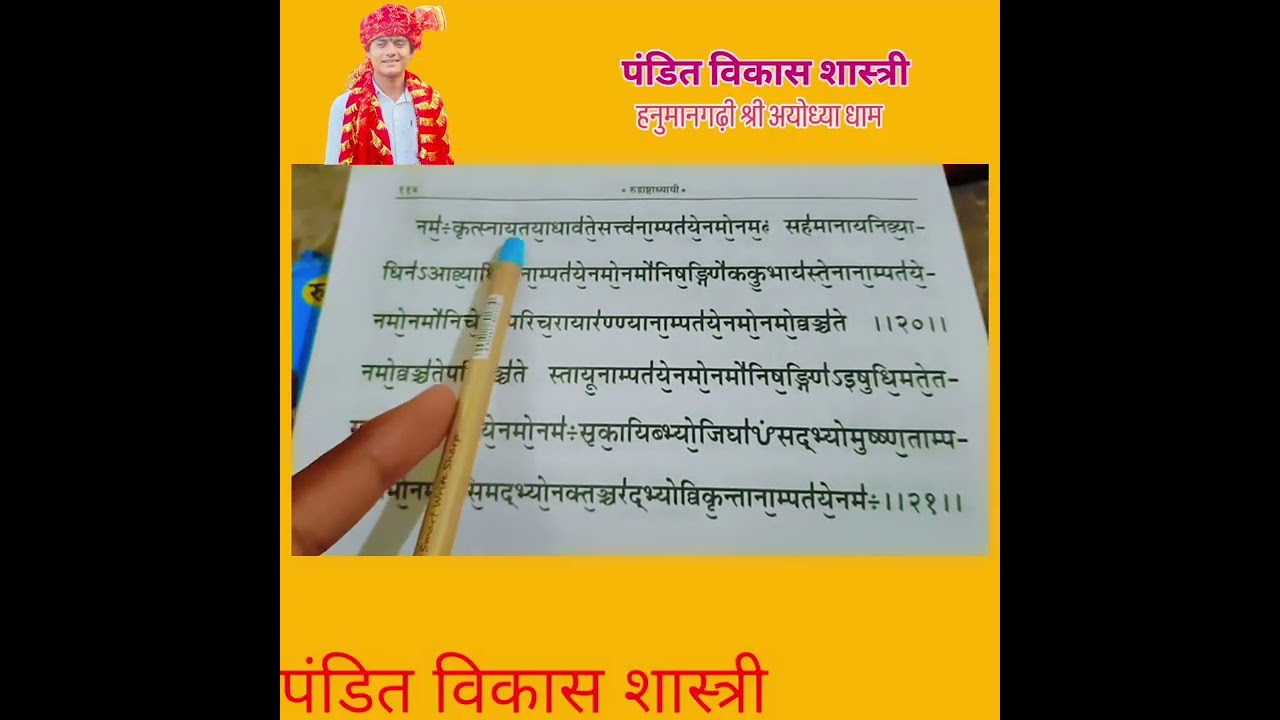 पंडित विकास शास्त्री
हनुमानगढ़ी श्री अयोध्या धाम
११४ * रुद्राष्टाध्यायी *
नम॑÷कृत्स्नाय॒तया॒धाव॑ते॒सत्त्व॑ना॒म्पत॑ये॒नमो॒नम॒ह॑ सह॑मानायनिव्या॒-
धिन॑ऽआव्या॒ ना॒म्पत॑ये॒नमो॒नमो॑निष॒ङ्गिणे॑ककु॒भाय॑स्ते॒नाना॒म्पत॑ये॒-
नमो॒नमो॑निचे॒ परिच॒रायार॑ण्ण्याना॒म्पत॑ये॒नमो॒नमो॒व्वञ्च॑ते ।।२०।।
नमो॒व्वञ्च॑तेपरि ञ्च॑ते स्तायू॒नाम्पत॑ये॒नमो॒नमो॑निष॒ङ्गिण॑ऽइषुधि॒मते॒त-
ये॒नमो॒नम॑÷सृका॒यिब्भ्यो॒जिघा॑ᳪसद्भ्योमुष्ण्ण॒ताम्प-
सि॒मद्भ्यो॒नक्त॒ञ्चर॑द्भ्योव्विकृ॒न्ताना॒म्पत॑ये॒नम॑÷।।२१।।
पंडित विकास शास्त्री